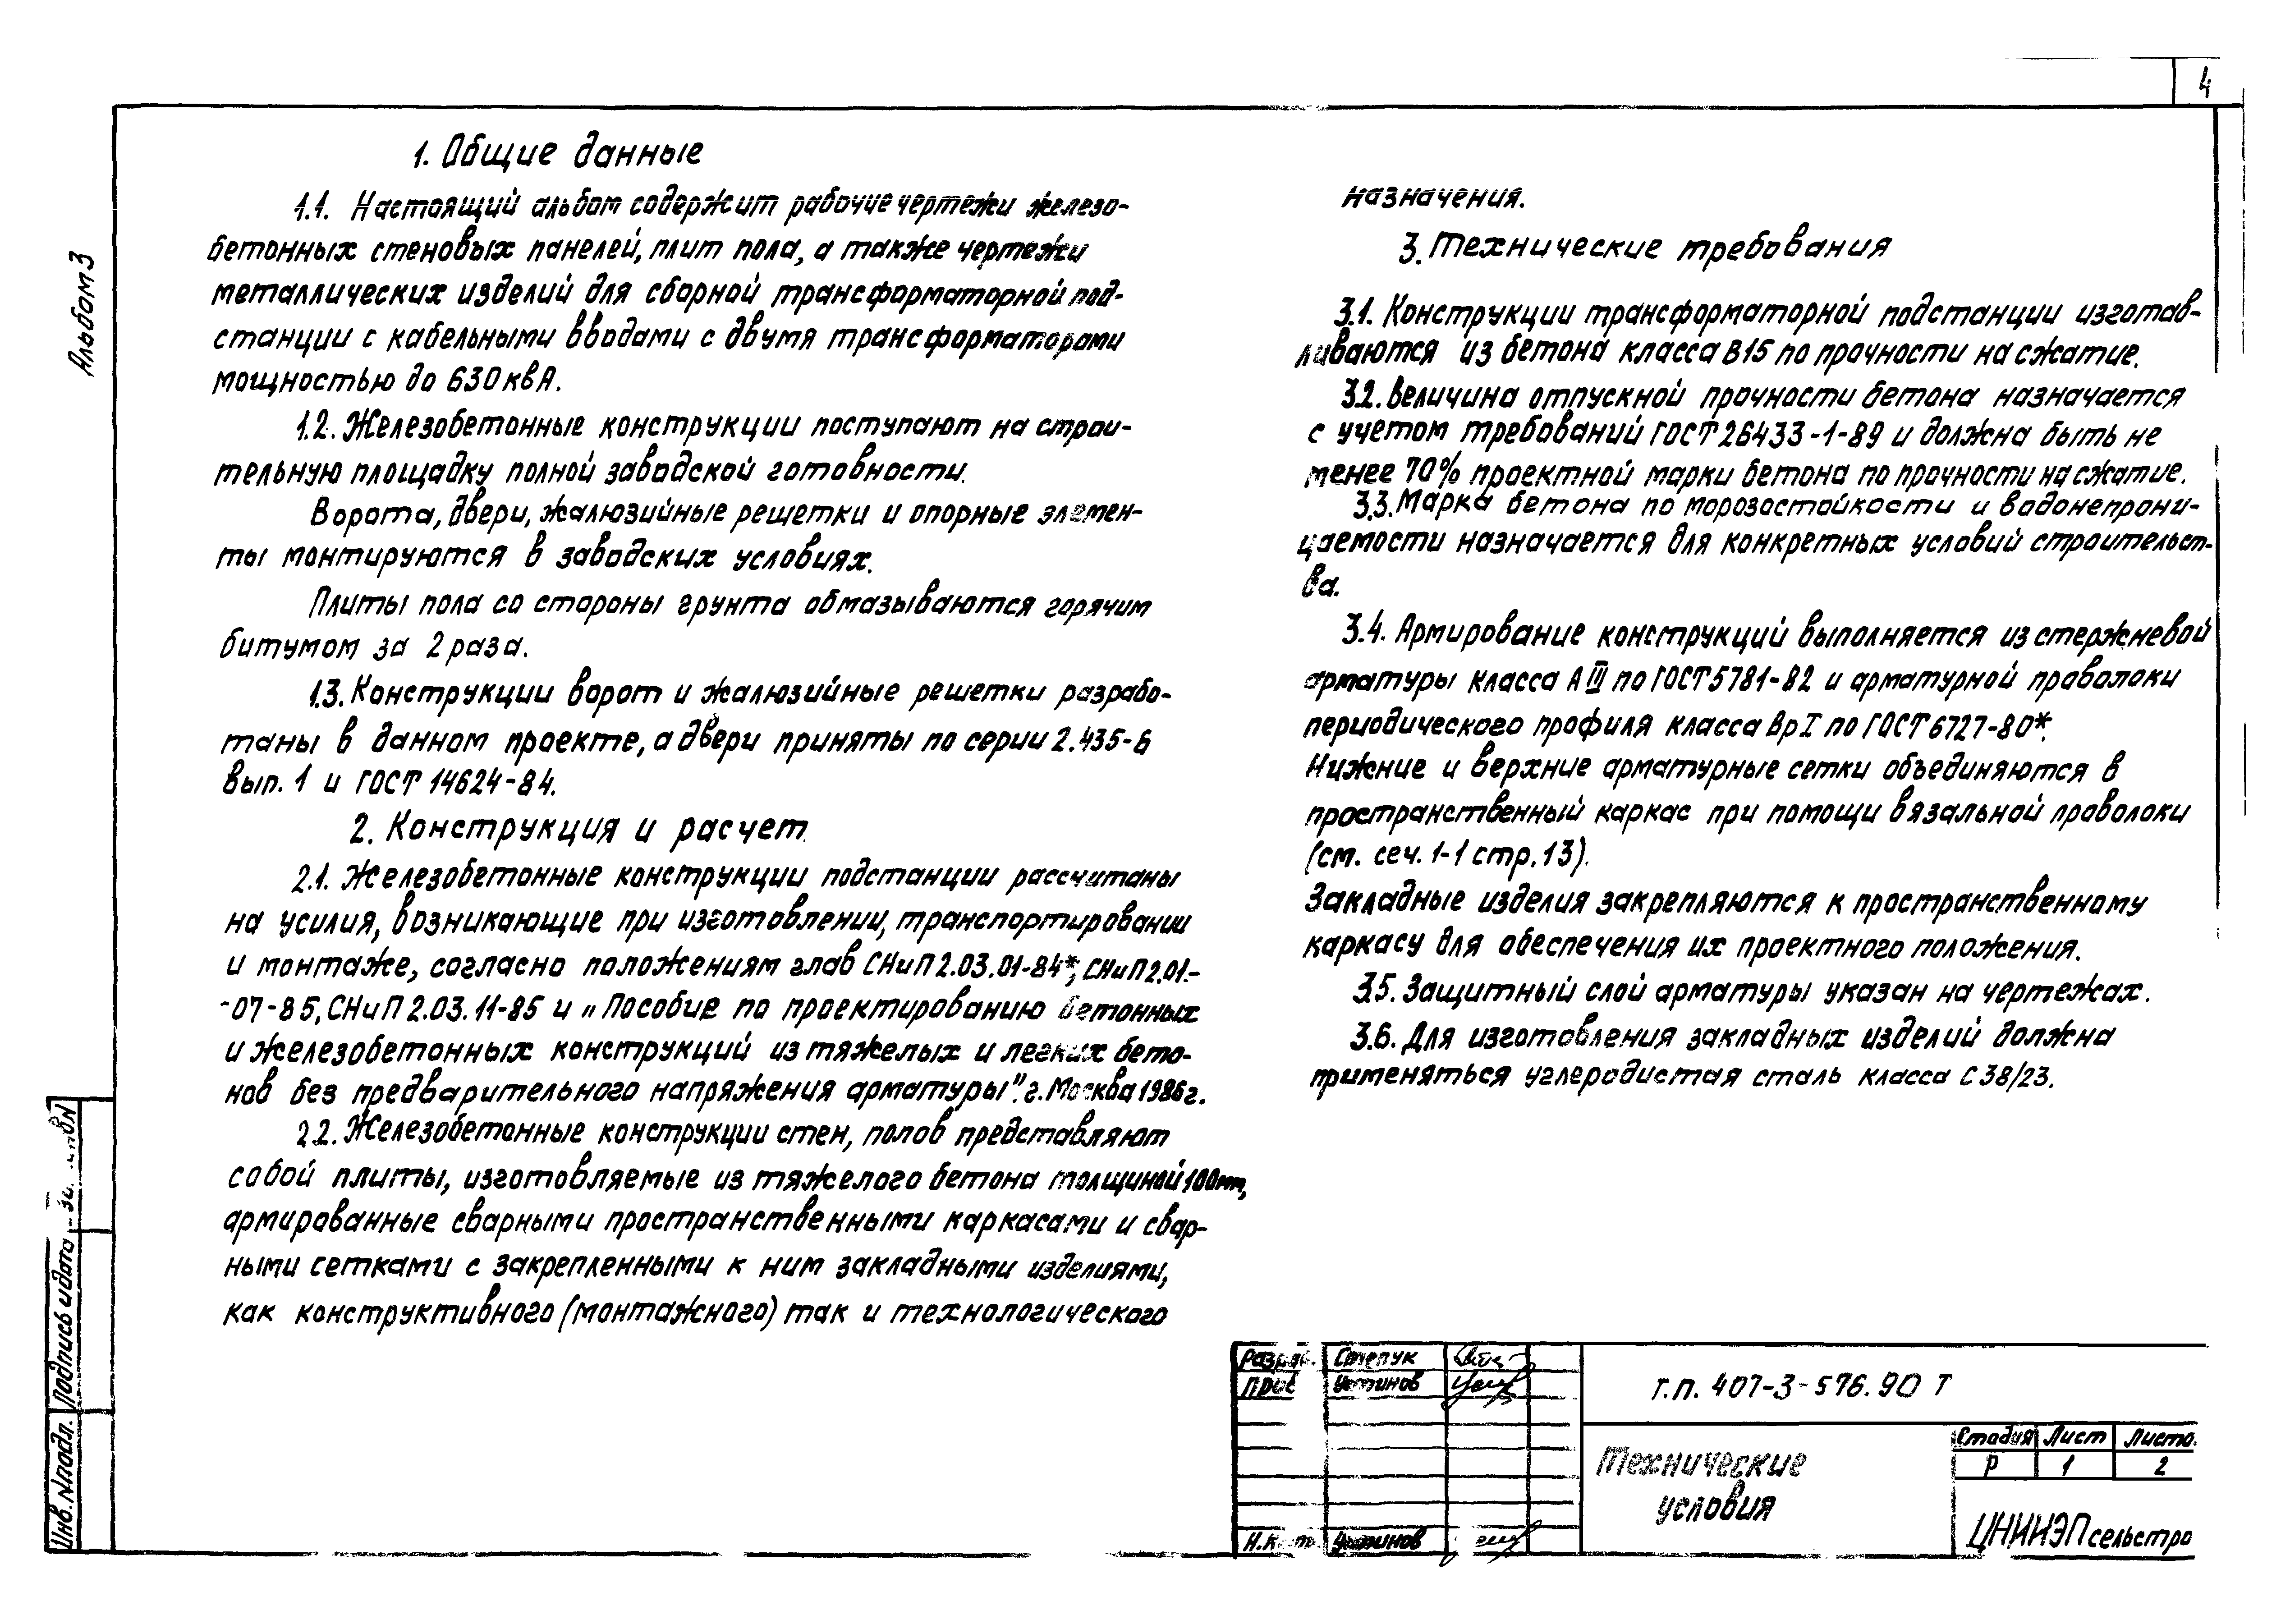 4
Альбом 3
1. Общие данные
1.1. Настоящий альбом содержит рабочие чертежи железо-
бетонных стеновых панелей, плит пола, а также чертежи
металлических изделий для сборной трансформаторной под-
станции с кабельными вводами с двумя трансформаторами
мощностью до 630 квА.
1.2. Железобетонные конструкции поступают на строи-
тельную площадку полной заводской готовности.
Ворота, двери, жалюзийные решетки и опорные элемен-
ты монтируются в заводских условиях.
Плиты пола со стороны грунта обмазываются горячим
битумом за 2 раза.
1.3. Конструкции ворот и жалюзийные решетки разрабо-
таны в данном проекте, а двери приняты по серии 2.435-6
вып. 1 и ГОСТ 14624-84.
2. Конструкция и расчет.
2.1. Железобетонные конструкции подстанции рассчитаны
на усилия, возникающие при изготовлении, транспортировании
и монтаже, согласно положениям глав СНиП 2.03.01-84*, СНиП 2.01.-
-07-85, СНиП 2.03.11-85 и „Пособие по проектированию бетонных
и железобетонных конструкций из тяжелых и легких бето-
нов без предварительного напряжения арматуры". г. Москва 1986 г.
2.2. Железобетонные конструкции стен, полов представляют
собой плиты, изготовляемые из тяжелого бетона толщиной 100мм,
армированные сварными пространственными каркасами и свар-
ными сетками с закрепленными к ним закладными изделиями,
как конструктивного (монтажного) так и технологического
назначения.
3. Технические требования
3.1. Конструкции трансформаторной подстанции изготав-
ливаются из бетона класса В15 по прочности на сжатие.
3.2. Величина отпускной прочности бетона назначается
с учетом требований ГОСТ 26433-1-89 и должна быть не
менее 70% проектной марки бетона по прочности на сжатие.
3.3. Марка бетона по морозостойкости и водонепрони-
цаемости назначается для конкретных условий строительст-
ва.
3.4. Армирование конструкций выполняется из стержневой
арматуры класса А III по ГОСТ 5781-82 и арматурной проволоки
периодического профиля класса Вр I по ГОСТ 6727-80*.
Нижние и верхние арматурные сетки объединяются в
пространственный каркас при помощи вязальной проволоки
(см. сеч. 1-1 стр. 13).
Закладные изделия закрепляются к пространственному
каркасу для обеспечения их проектного положения.
3.5. Защитный слой арматуры указан на чертежах.
3.6. Для изготовления закладных изделий должна
применяться углеродистая сталь класса С 38/23.
Разраб. Степук
Пров Устинов
Н.к Устинов
т.п. 407-3-576.90 Т
Технические
условия
Стадия Лист Листо.
Р 1 2
ЦНИИЭПсельстро
Инв. N подл. Подпись и дата